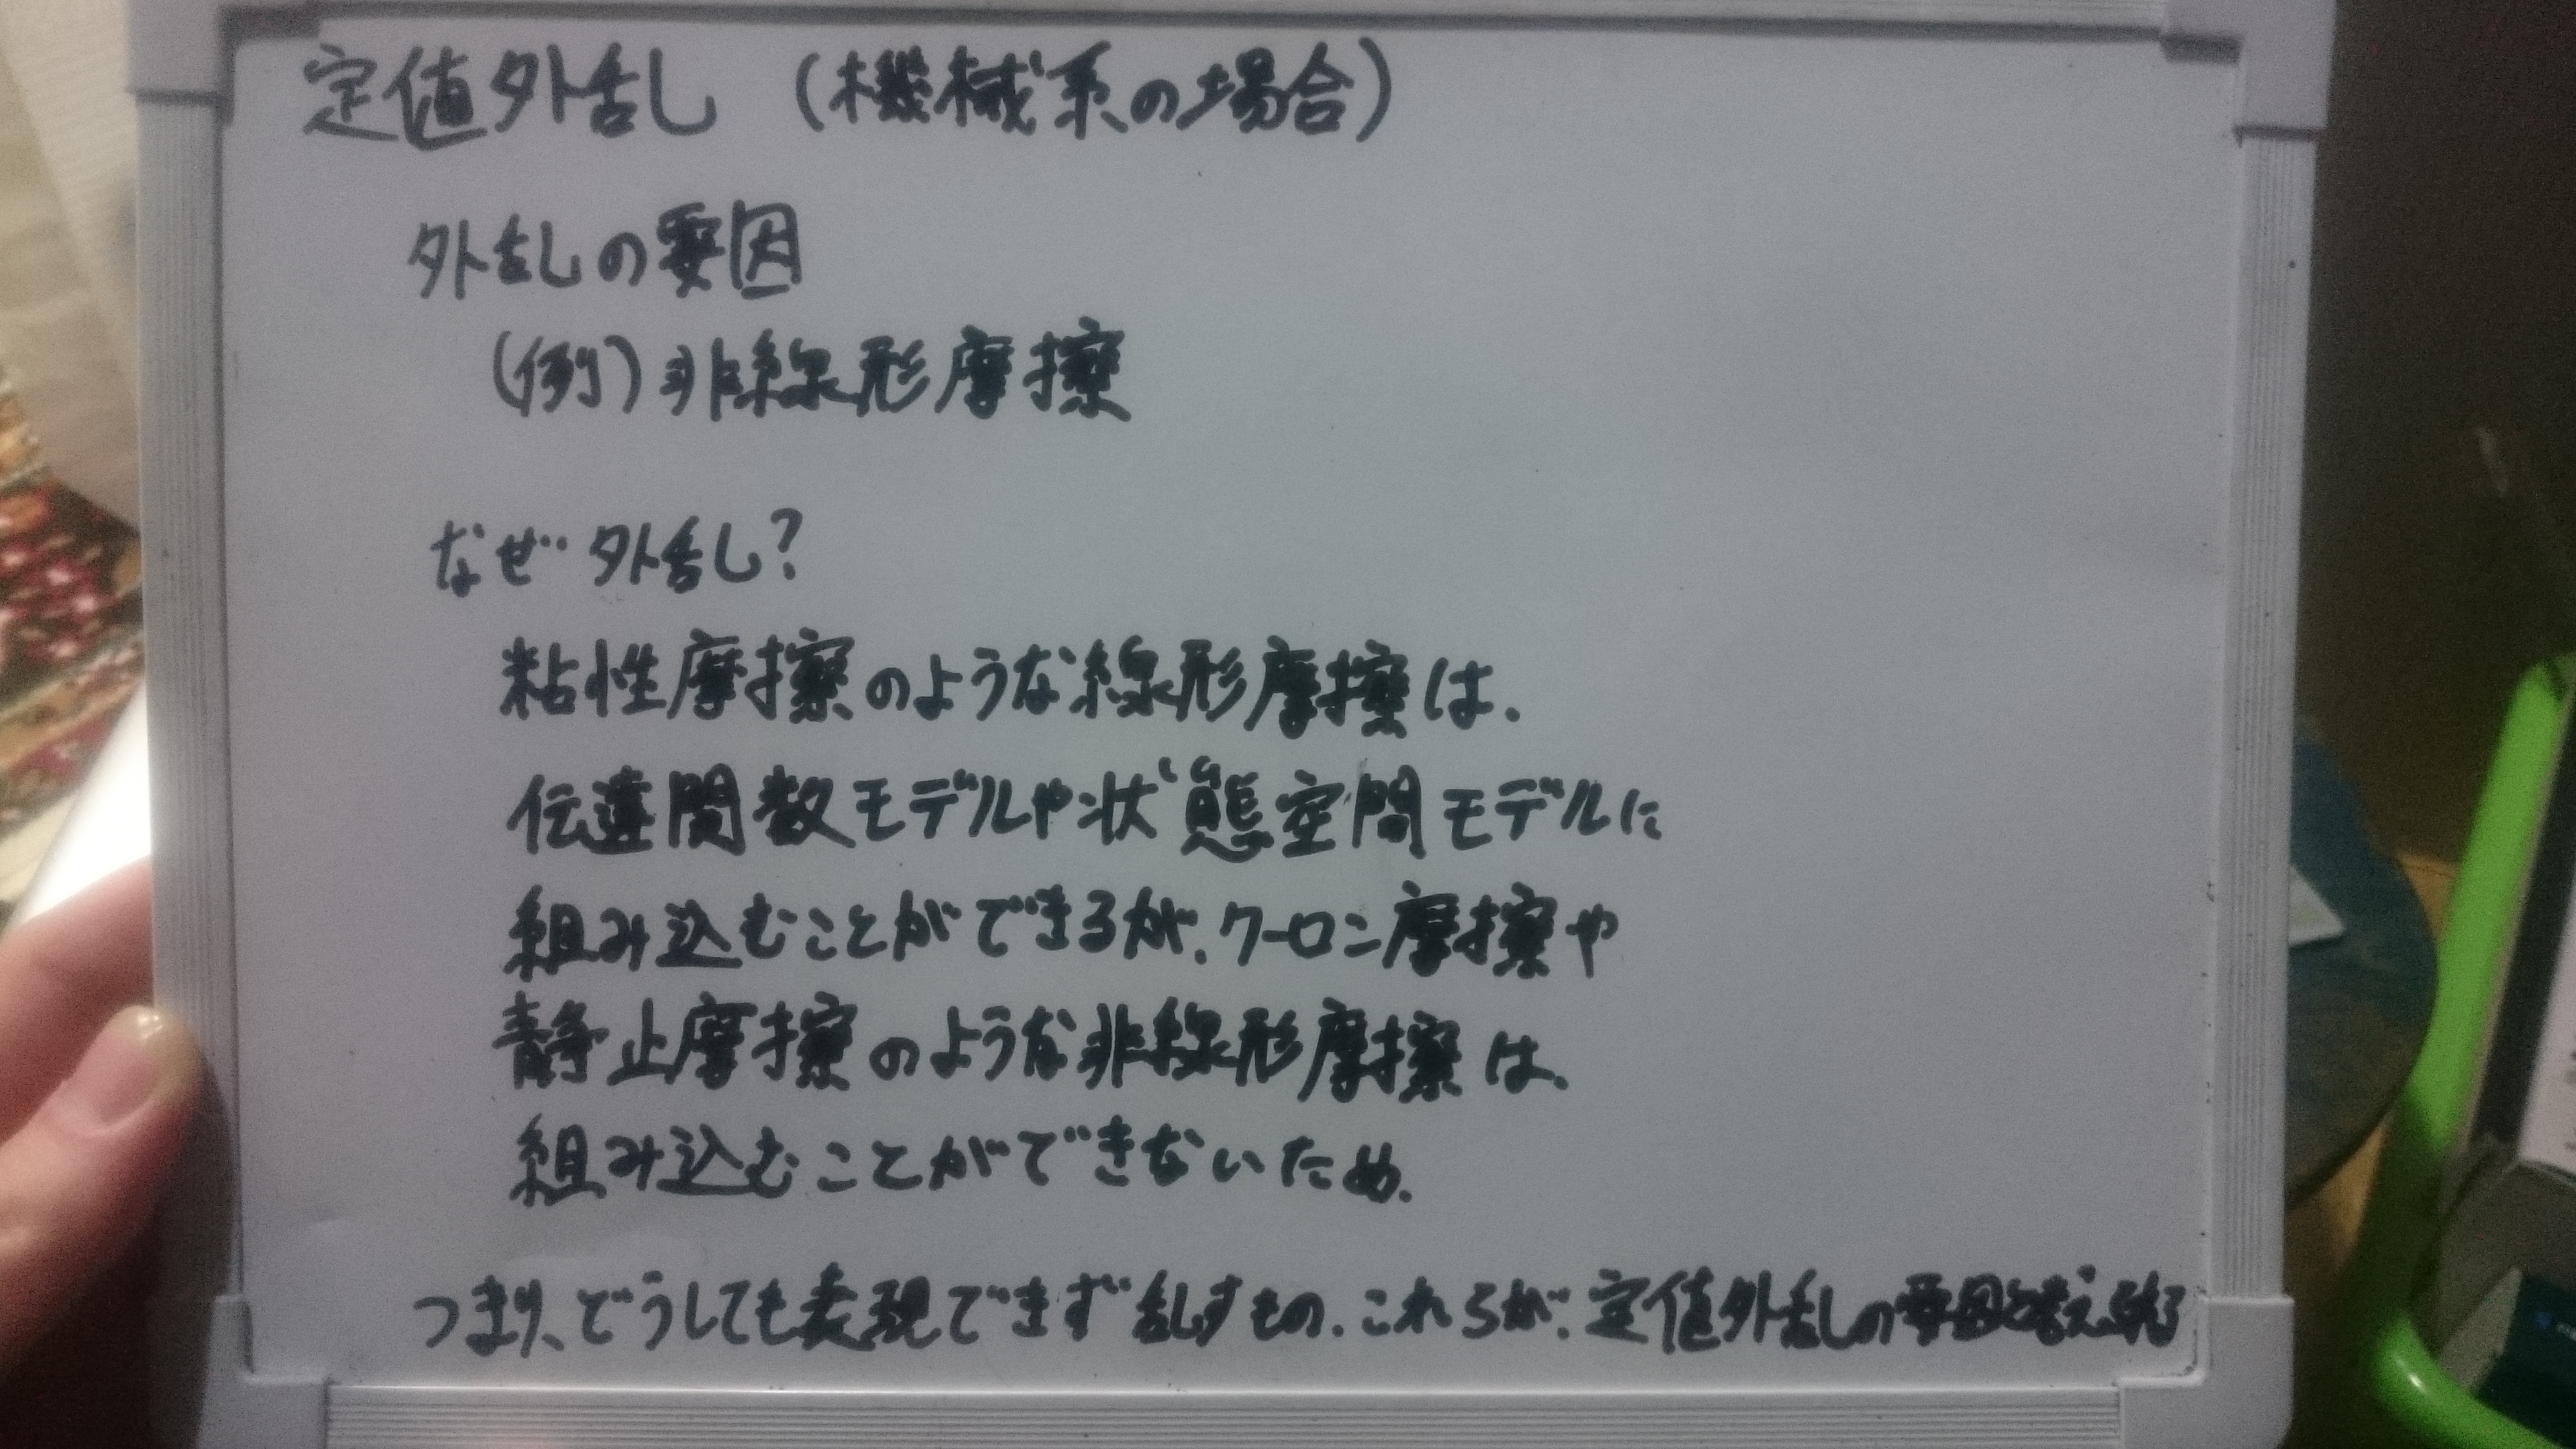 定値外乱し (機械系の場合)
外乱しの要因
(例) 非線形摩擦
なぜ外乱し?
粘性摩擦のような線形摩擦は、
伝達関数モデルや状態空間モデルに
組み込むことができるが、クーロン摩擦や
静止摩擦のような非線形摩擦は、
組み込むことができないため.
つまり、どうしても表現できず乱すもの.これらが、定値外乱しの要因と考えられる